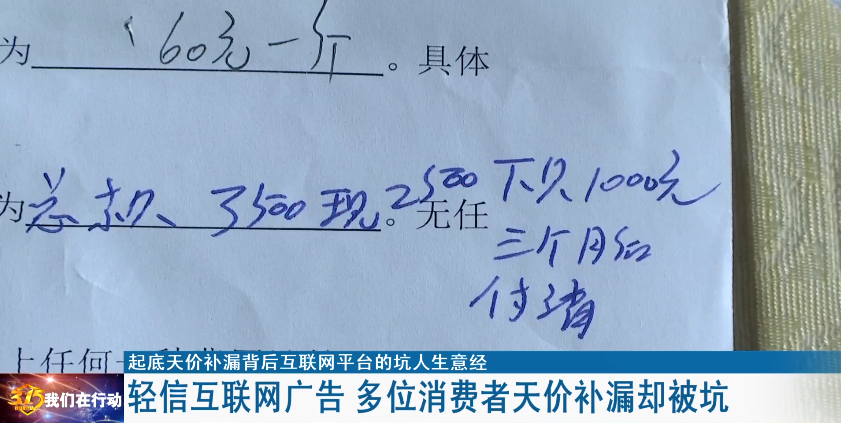 为 160元一个。具体
为总款 3500现2500 下欠1000元
。无任
三个月后
付清
上任何一
起底天价补漏背后互联网平台的坑人生意经
315我们在行动
轻信互联网广告 多位消费者天价补漏却被坑